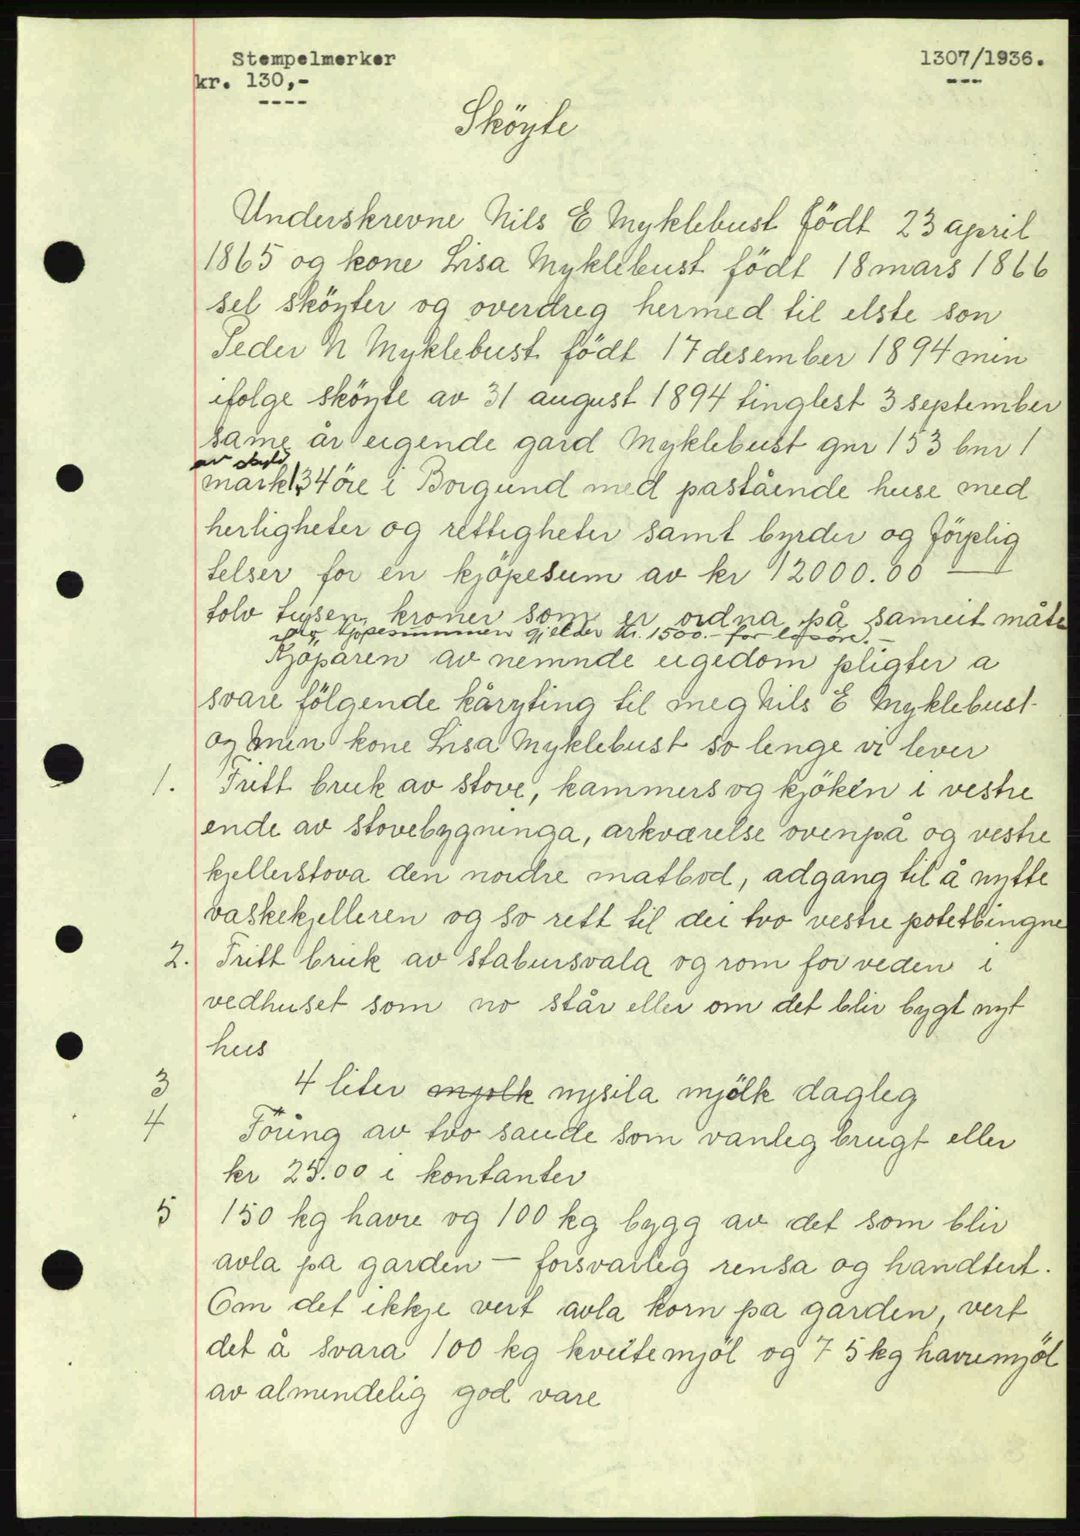 Stempelmerker
kr. 130,-
----
1307/1936.
---
Sköyte
Underskrevne Nils E Myklebust födt 23 april
1865 og kone Lisa Myklebust födt 18 mars 1866
sel sköyter og overdreg hermed til elste son
Peder N Myklebust födt 17 desember 1894 min
ifolge sköyte av 31 august 1894 tinglest 3 september
same år eigende gard Myklebust gnr 153 bnr 1
av skyld
mark 1,34 öre i Borgund med pastående huse med
herligheter og rettigheter samt byrder og förplig
telser for en kjöpesum av kr 12000.00 —
tolv tusen kroner som er ordna på sameit måte
Av kjøpesummen gjelder kr. 1500.- for løsøre. -
Kjöparen av nemnde eigedom pligter a
svare fölgende kåryting til meg Nils E Myklebust
og min kone Lisa Myklebust so lenge vi lever
1. Fritt bruk av stove, kammers og kjöken i vestre
ende av stovebygninga, arkværelse ovenpå og vestre
kjellerstova den nordre matbod, adgang til å nytte
vaskekjelleren og so rett til dei tvo vestre potetbingne
2. Fritt bruk av stabursvala og rom for veden i
vedhuset som no står eller om det blir bygt nyt
hus
3 4 liter mjolk nysila mjölk dagleg
4 Föring av tvo saude som vanleg brugt eller
kr 25.00 i kontanter
5 150 kg havre og 100 kg bygg av det som blir
avla pa garden — forsvarleg rensa og handtert.
Om det ikkje vert avla korn pa garden, vert
det å svara 100 kg kveitemjöl og 75 kg havremjöl
av almendelig god vare